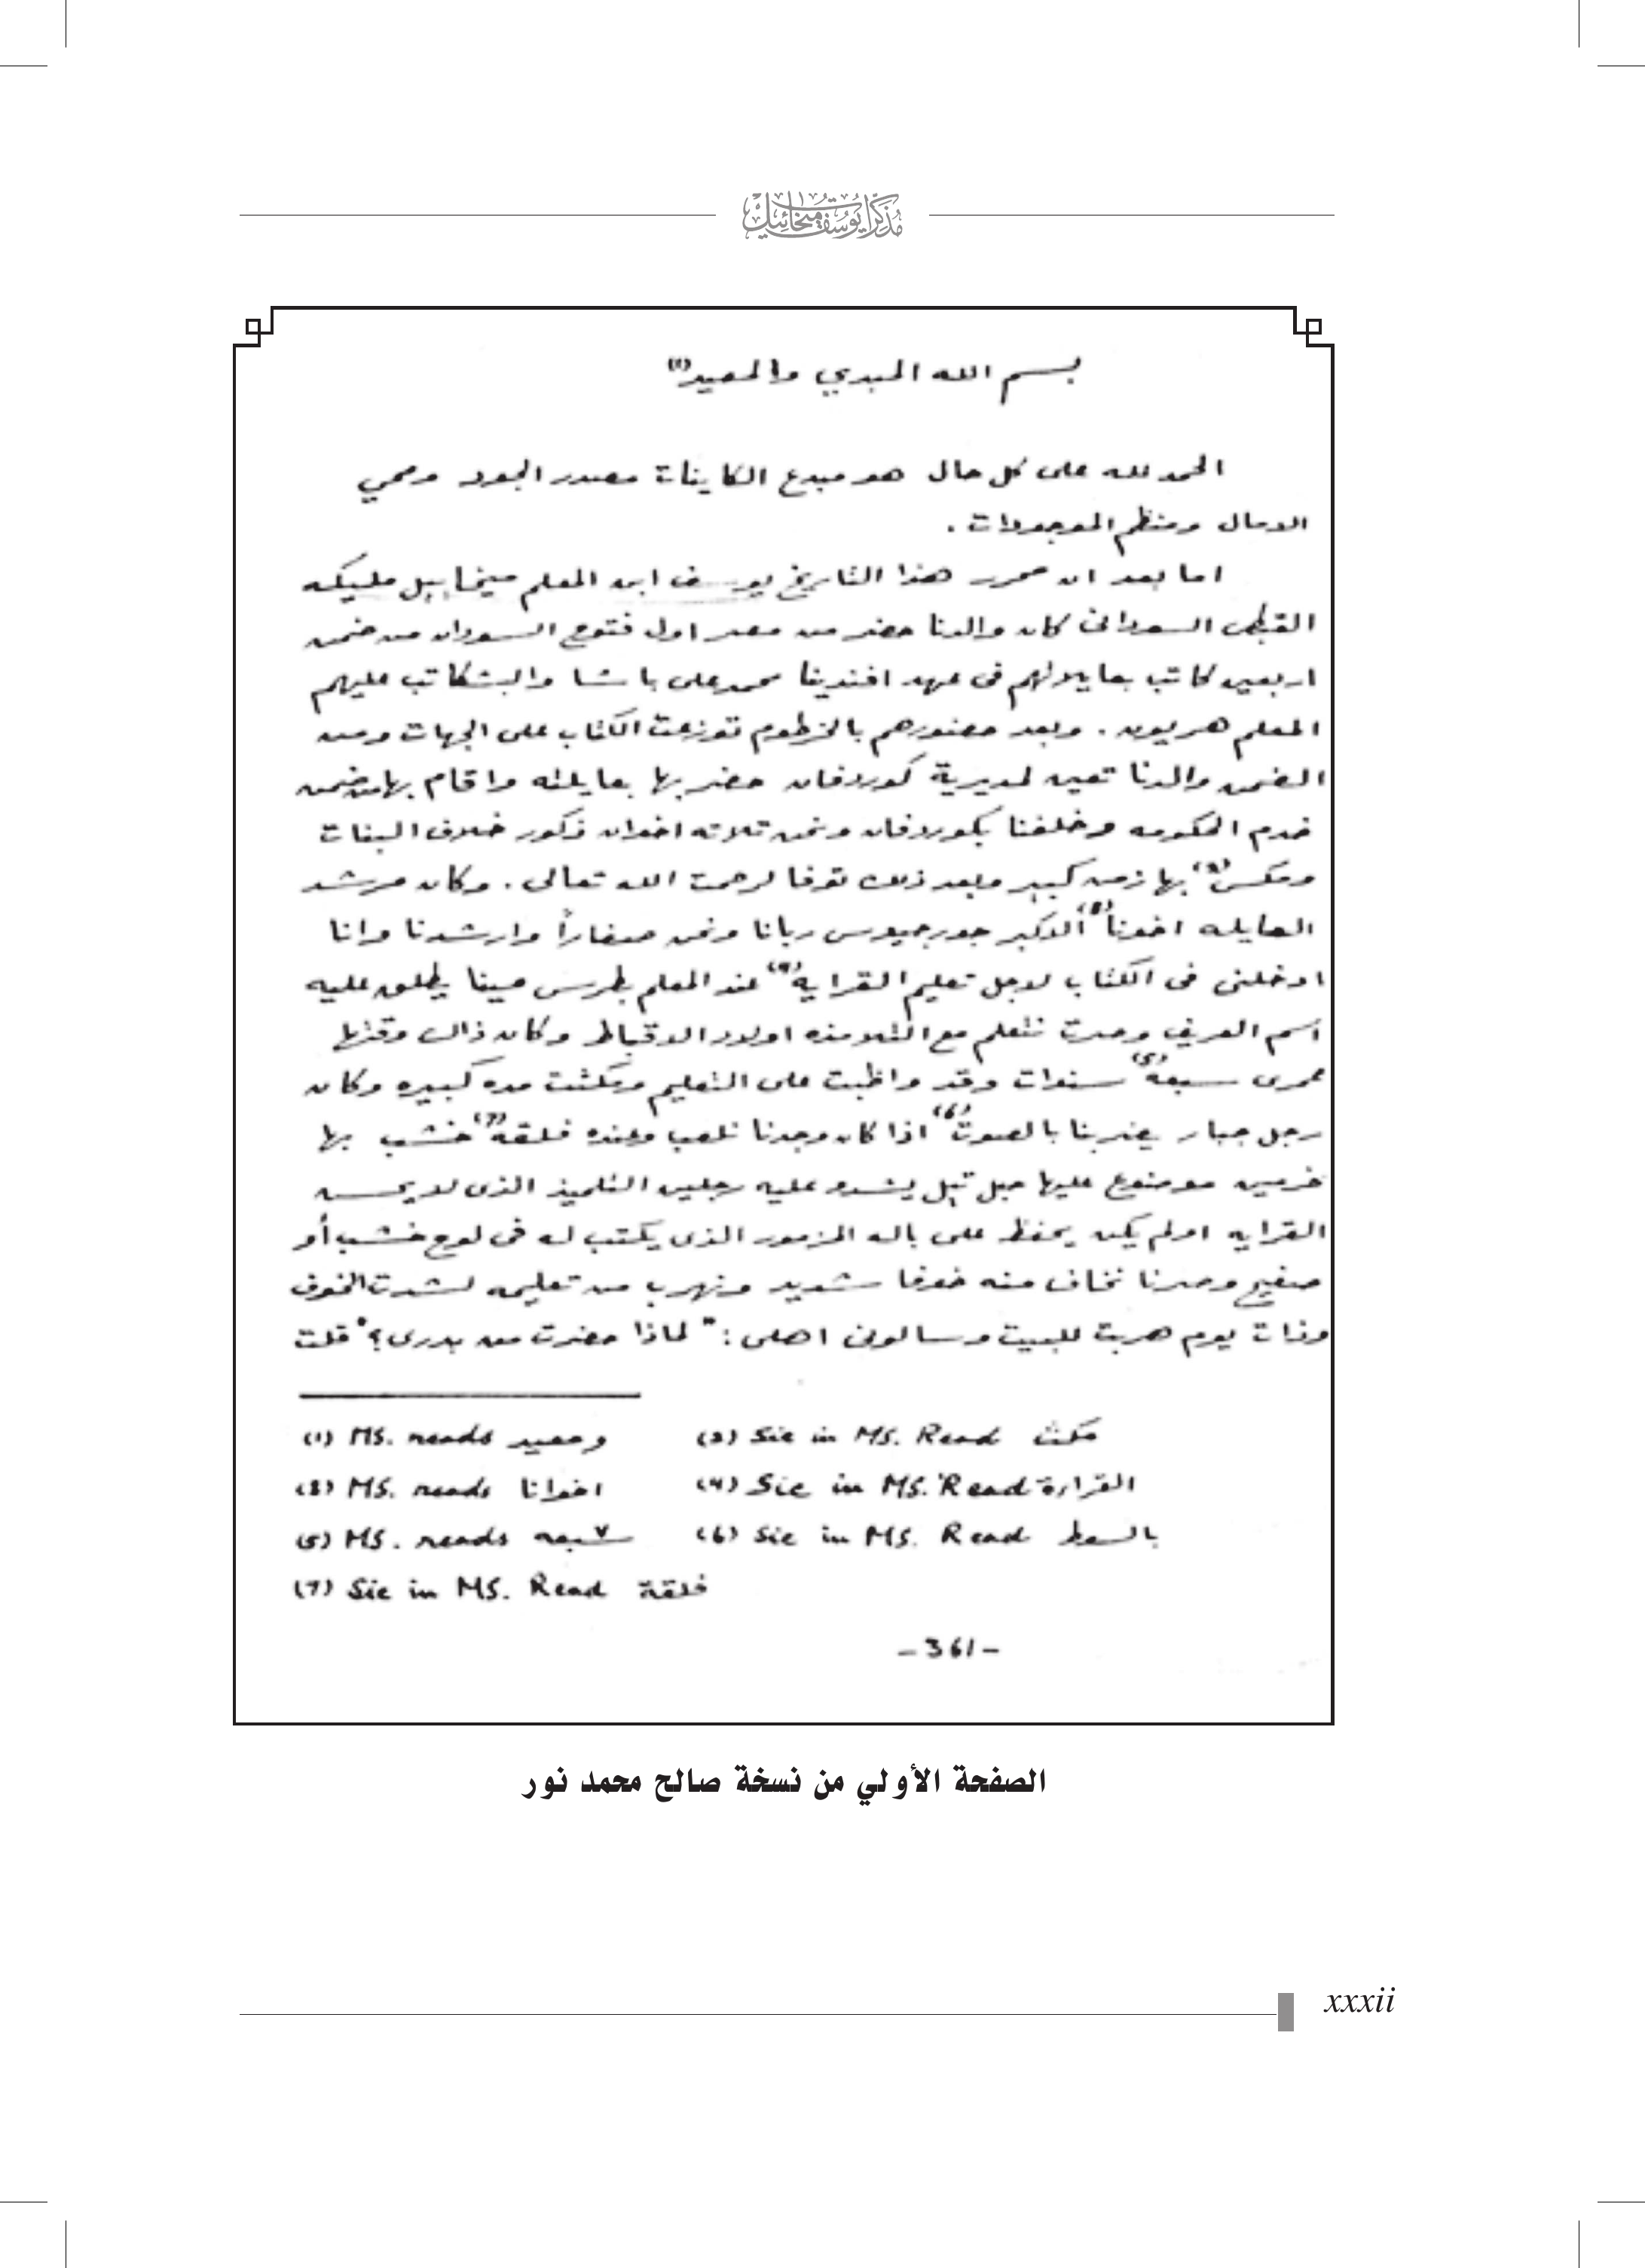 مذكرات يوسف ميخائيل
بسم الله المبدي والمعيد(1)
الحمد لله على كل حال هو مبدع الكاينات مصدر الجود ومحمي
الامال ومنظم الموجودات .
اما بعد ان محرر هذا التاريخ يوسف ابن المعلم ميخاييل مليكه
القبطى السودانى كان والدنا حضر من مصر اول فتوح السودان من ضمن
اربعين كاتب بعايلاتهم فى عهد افندينا محمد على باشا والبشكاتب عليهم
المعلم هريون . وبعد حضورهم بالخرطوم توزعت الكتاب على الجهات ومن
الضمن والدنا تعين لمديرية كوردفان حضر بها بعايلته واقام بها من ضمن
خدم الحكومه وخلفنا بكوردفان ونحن تلاته اخوان ذكور خلاف البنات
ومكس(2) بها زمن كبير وبعد ذلك توفا لرحمت الله تعالى . وكان مرشد
العايله اخونا(3) الاكبر جورجيوس ربانا ونحن صغاراً وارشدنا وانا
ادخلنى فى الكتاب لاجل تعليم القرايه(4) عند المعلم بطرس مينا يطلق عليه
اسم العريف وصرت نتعلم مع التلامذه اولاد الاقباط وكان ذالك وقتها
عمرى سبعه(5) سنوات وقد واظبت على التعليم ومكثت مده كبيره وكان
رجل جبار يضربنا بالصوت(6) اذا كان وجدنا نلعب وعنده فلقه(7) خشب بها
خرمين موضوع عليها حبل تيل يشدو عليه رجلين التلميذ الذى لا يحسن
القرايه اولم يكن يحفظ على باله المزمور الذى يكتب له فى لوح خشب أو
صفيح وصرنا نخاف منه خوفا شديد ونهرب من تعليمه لشدت الخوف
وذات يوم هربت للبيت وسالونى اهلى : " لماذا حضرت من بدرى ؟ " قلت
(1) MS. reads ومعيد (2) Sic in MS. Read مكث
(3) MS. reads اخوانا (4) Sic in MS. Read القراءة
(5) MS. reads شبعه (6) Sic in MS. Read بالسوط
(7) Sic in MS. Read فلقة
- 361 -
الصفحة الأولي من نسخة صالح محمد نور
xxxii